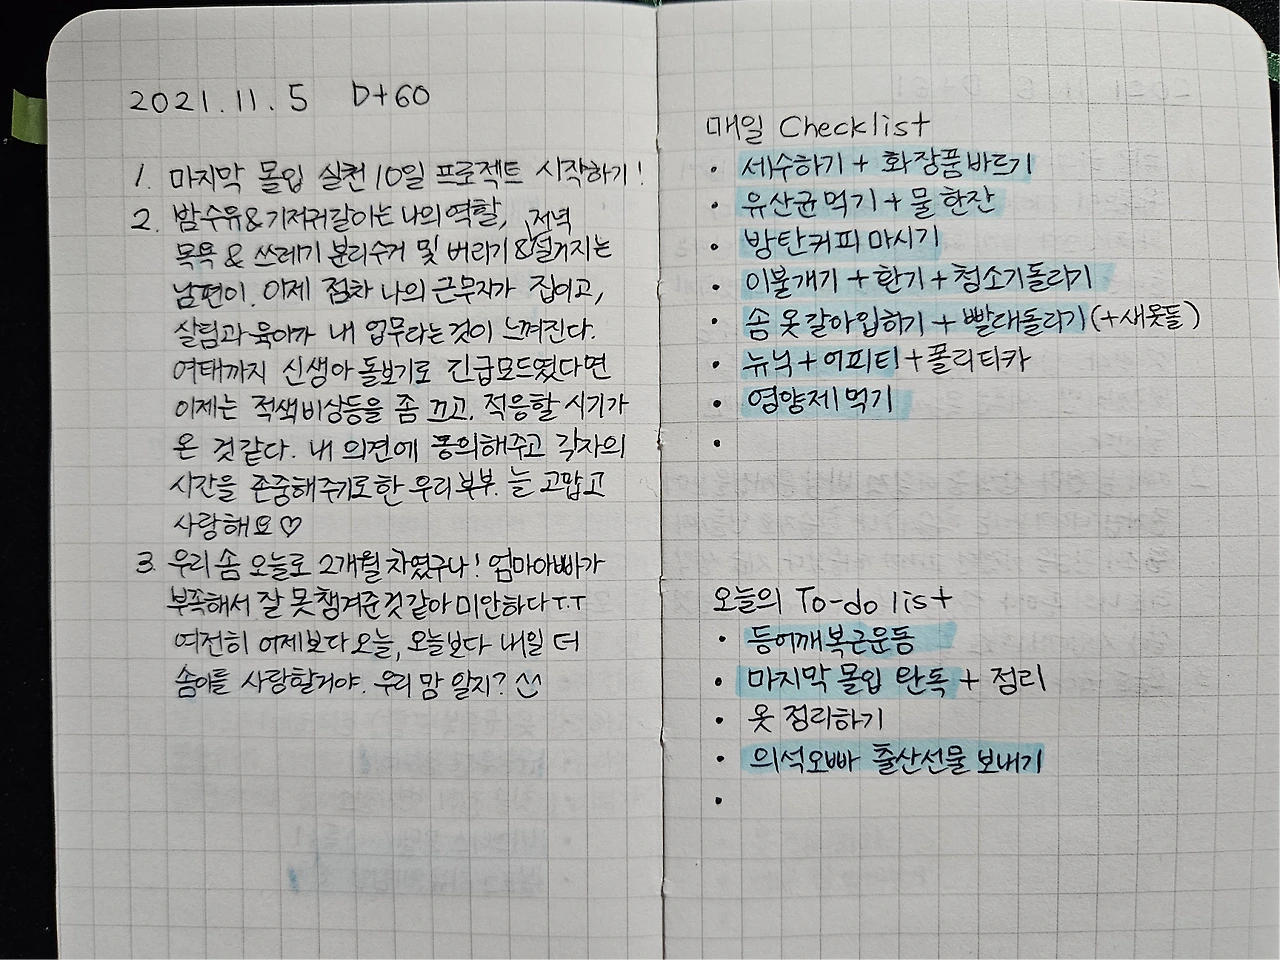 2021.11.5 D+60
1. 마지막 몰입 실천 10일 프로젝트 시작하기!
2. 밤수유&기저귀갈이는 나의 역할, 저녁
목욕 & 쓰레기 분리수거 및 버리기 &설거지는
남편이. 이제 점차 나의 근무지가 집이고,
살림과 육아가 내 업무라는 것이 느껴진다.
여태까지 신생아 돌보기로 긴급모드였다면
이제는 적색비상등을 좀 끄고, 적응할 시기가
온 것 같다. 내 의견에 동의해주고 각자의
시간을 존중해주기로한 우리 부부. 늘 고맙고
사랑해요♡
3. 우리 솜 오늘로 2개월 차였구나! 엄마아빠가
부족해서 잘 못챙겨준것같아 미안하다 T.T
여전히 어제보다 오늘, 오늘보다 내일 더
솜이를 사랑할거야. 우리 맘 알지?
매일 Checklist
• 세수하기 + 화장품바르기
• 유산균 먹기 + 물 한잔
• 방탄커피 마시기
• 이불개기 + 환기 + 청소기돌리기
• 솜 옷 갈아입히기 + 빨래돌리기 (+새옷들)
• 뉴닉 + 어피티 + 폴리티카
• 영양제 먹기
•
오늘의 To-do list
• 등어깨복근운동
• 마지막 몰입 완독 + 정리
• 옷 정리하기
• 의석오빠 출산선물 보내기
•